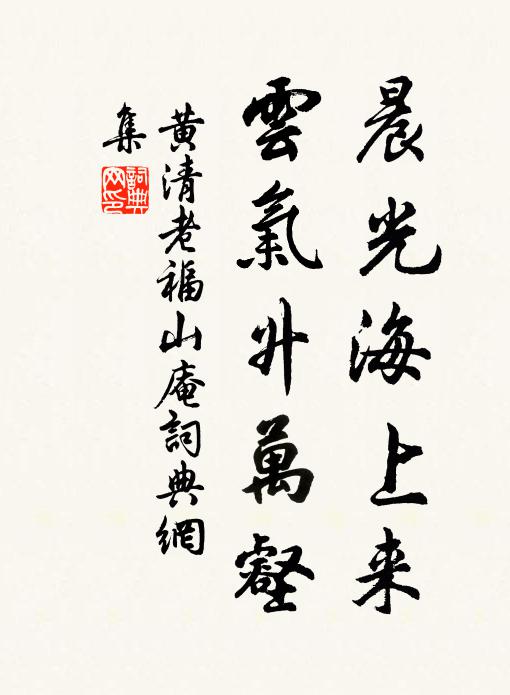 晨光海上来
雲氣升萬壑
黃清老福山庵詞典網
集
詞典网印